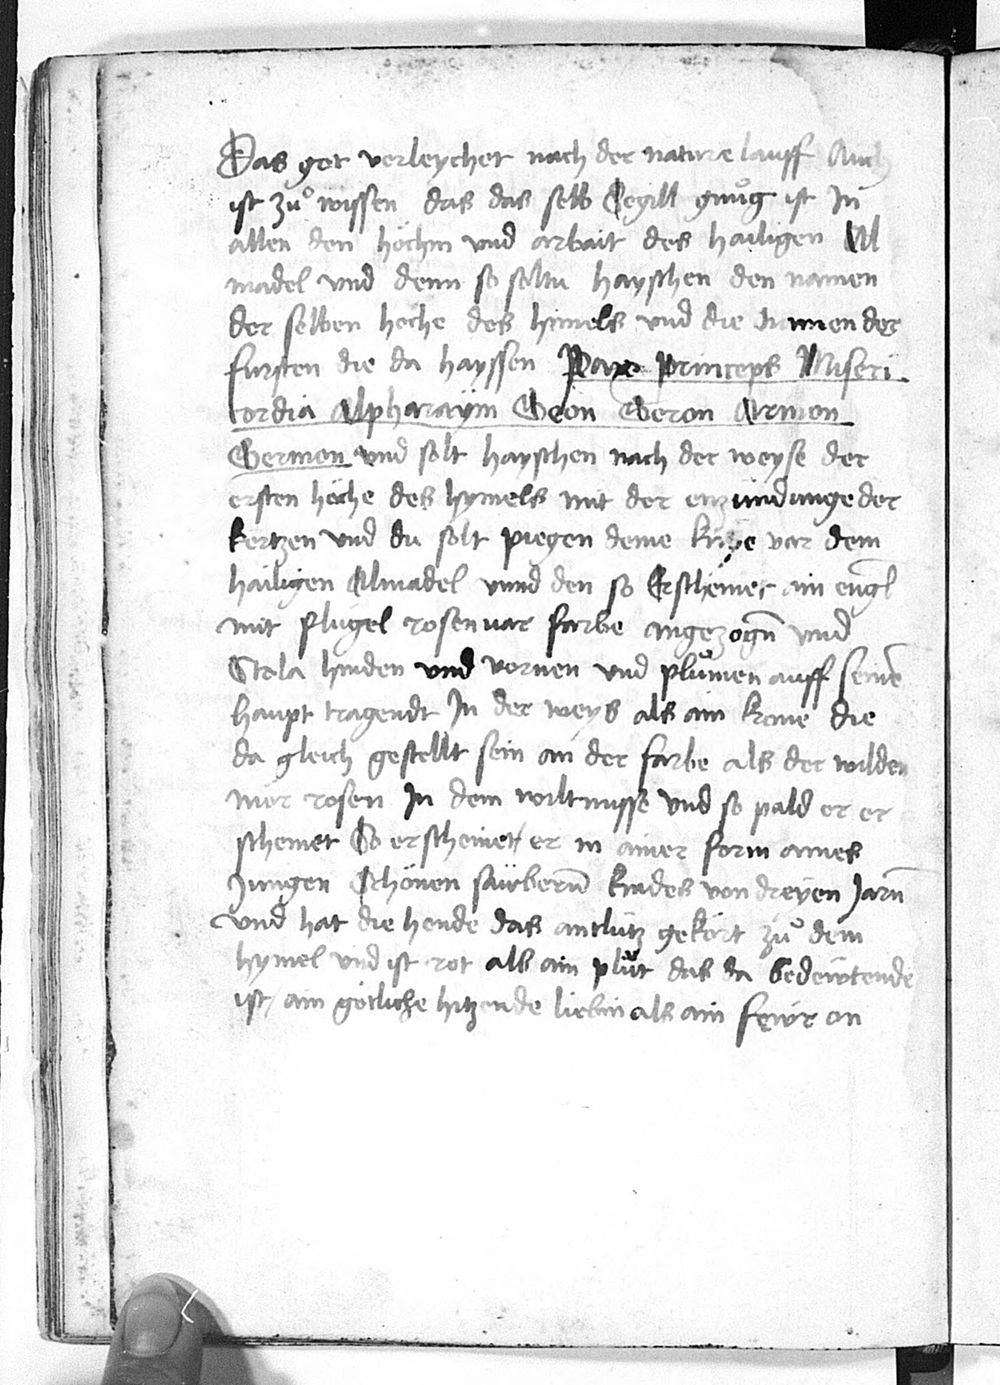 Das got verleychet nach der nature lauff Auch
ist zů wissen das das selb Segill gnůg ist In
allen den höchin vnd arbait des hailigen Al
madel vnd denn so soltu hayschen den namen
der selben höche des himels vnd die namen der
fursten die da hayssen Pax princeps Miseri
cordia Alpharaÿm Geön Geron Armon
Germon vnd solt hayschen nach der weyse der
ersten höche des hymels mit der enzundunge der
kertzen vnd du solt piegen deine knye vor dem
hailigen Almadel vnnd den so Erscheinet ain engl
mit flugel rosenvar farbe angezogn̄ vnd
Stola hinden vnd vornen vnd plůmen auff seinē
haupt tragendt In der weys als ain krone die
da gleich gestellt sein an der farbe als der wilden
rosen In dem vorltnusse vnd so pald er er
scheinet So erscheinet er in ainer form aines
Jungen Schönen säwbern̄ kindes von dreyen Jarn̄
vnd hat die hende das antlutz gekört zů dem
hymel vnd ist rot als ain plůt das da bedewtende
ist ain götliche hitzende liebin als ain fewr an